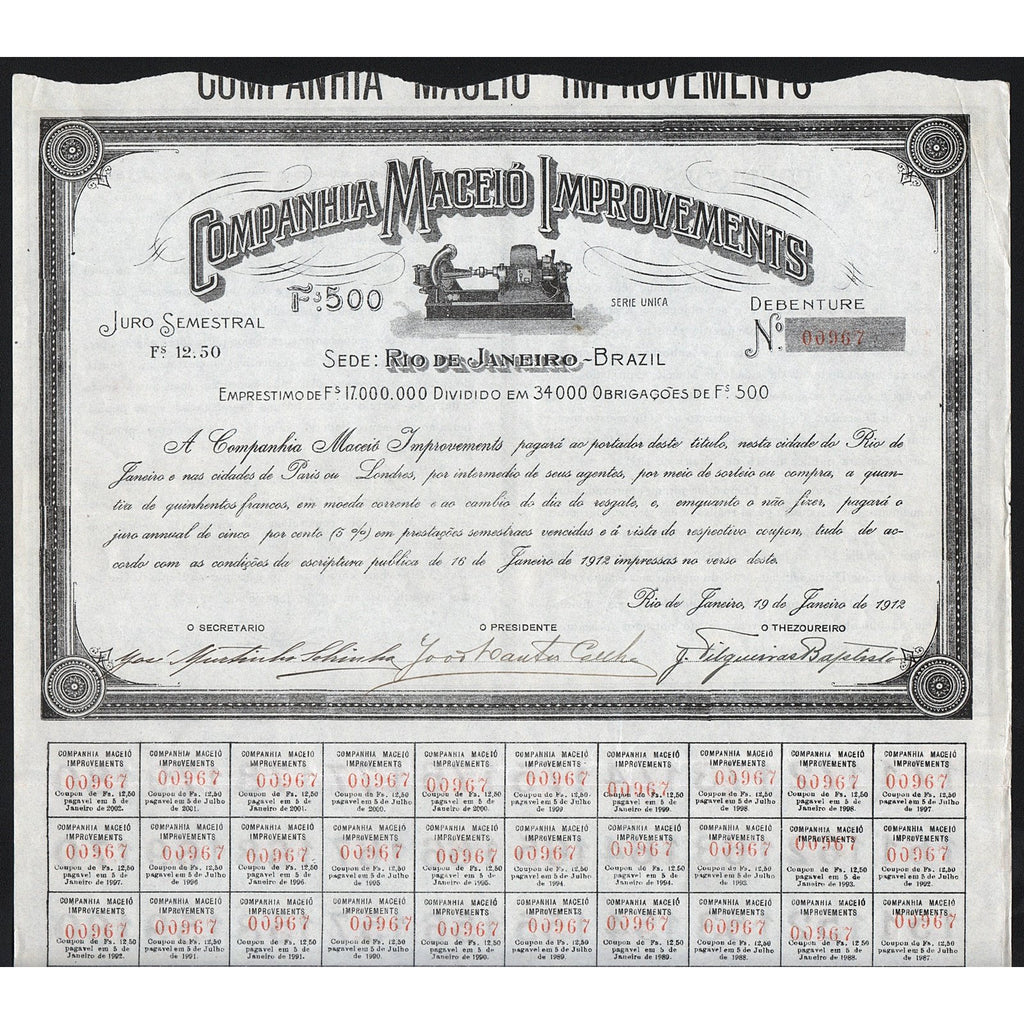 COMPANHIA MACEIÓ IMPROVEMENTS
COMPANHIA MACEIÓ IMPROVEMENTS
Fs. 500
SERIE UNICA
DEBENTURE
JURO SEMESTRAL
Nº 00967
Fs 12.50
SEDE: RIO DE JANEIRO-BRAZIL
EMPRESTIMO DE Fs 17.000.000 DIVIDIDO EM 34000 OBRIGAÇOES DE Fs. 500
A Companhia Maceió Improvements pagará ao portador deste titulo, nesta cidade do Rio de
Janeiro e nas cidades de Paris ou Londres, por intermedio de seus agentes, por meio de sorteio ou compra, a quan-
tia de quinhentos francos, em moeda corrente e ao cambio do dia do resgate, e, emquanto o não fizer, pagará o
juro annual de cinco por cento (5 %) em prestações semestraes vencidas e á vista do respectivo coupon, tudo de ac-
cordo com as condições da escriptura publica de 16 de Janeiro de 1912 impressas no verso deste.
Rio de Janeiro, 19 de Janeiro de 1912
O SECRETARIO O PRESIDENTE O THEZOUREIRO
José Martinho Sobrinho João Santos Coelho J. Filgueiras Baptista
COMPANHIA MACEIÓ COMPANHIA MACEIÓ COMPANHIA MACEIÓ COMPANHIA MACEIÓ COMPANHIA MACEIÓ COMPANHIA MACEIÓ COMPANHIA MACEIÓ COMPANHIA MACEIÓ COMPANHIA MACEIÓ COMPANHIA MACEIÓ
IMPROVEMENTS IMPROVEMENTS IMPROVEMENTS IMPROVEMENTS IMPROVEMENTS IMPROVEMENTS IMPROVEMENTS IMPROVEMENTS IMPROVEMENTS IMPROVEMENTS
00967 00967 00967 00967 00967 00967 00967 00967 00967 00967
Coupon de Fs. 12,50 Coupon de Fs. 12,50 Coupon de Fs. 12,50 Coupon de Fs. 12,50 Coupon de Fs. 12,50 Coupon de Fs. 12,50 Coupon de Fs. 12,50 Coupon de Fs. 12,50 Coupon de Fs. 12,50 Coupon de Fs. 12,50
pagavel em 5 de pagavel em 5 de Julho pagavel em 5 de pagavel em 5 de Julho pagavel em 5 de pagavel em 5 de Julho pagavel em 5 de pagavel em 5 de Julho pagavel em 5 de pagavel em 5 de Julho
Janeiro de 2002. de 2001. Janeiro de 2001. de 2000. Janeiro de 2000. de 1999 Janeiro de 1999. de 1998 Janeiro de 1998. de 1997.
COMPANHIA MACEIÓ COMPANHIA MACEIÓ COMPANHIA MACEIÓ COMPANHIA MACEIÓ COMPANHIA MACEIÓ COMPANHIA MACEIÓ COMPANHIA MACEIÓ COMPANHIA MACEIÓ COMPANHIA MACEIÓ COMPANHIA MACEIÓ
IMPROVEMENTS IMPROVEMENTS IMPROVEMENTS IMPROVEMENTS IMPROVEMENTS IMPROVEMENTS IMPROVEMENTS IMPROVEMENTS IMPROVEMENTS IMPROVEMENTS
00967 00967 00967 00967 00967 00967 00967 00967 00967 00967
Coupon de Fs. 12,50 Coupon de Fs. 12,50 Coupon de Fs. 12,50 Coupon de Fs. 12,50 Coupon de Fs. 12,50 Coupon de Fs. 12,50 Coupon de Fs. 12,50 Coupon de Fs. 12,50 Coupon de Fs. 12,50 Coupon de Fs. 12,50
pagavel em 5 de pagavel em 5 de Julho pagavel em 5 de pagavel em 5 de Julho pagavel em 5 de pagavel em 5 de Julho pagavel em 5 de pagavel em 5 de Julho pagavel em 5 de pagavel em 5 de Julho
Janeiro de 1997. de 1996 Janeiro de 1996. de 1995. Janeiro de 1995. de 1994. Janeiro de 1994. de 1993 Janeiro de 1993. de 1992.
COMPANHIA MACEIÓ COMPANHIA MACEIÓ COMPANHIA MACEIÓ COMPANHIA MACEIÓ COMPANHIA MACEIÓ COMPANHIA MACEIÓ COMPANHIA MACEIÓ COMPANHIA MACEIÓ COMPANHIA MACEIÓ COMPANHIA MACEIÓ
IMPROVEMENTS IMPROVEMENTS IMPROVEMENTS IMPROVEMENTS IMPROVEMENTS IMPROVEMENTS IMPROVEMENTS IMPROVEMENTS IMPROVEMENTS IMPROVEMENTS
00967 00967 00967 00967 00967 00967 00967 00967 00967 00967
Coupon de Fs. 12,50 Coupon de Fs. 12,50 Coupon de Fs. 12,50 Coupon de Fs. 12,50 Coupon de Fs. 12,50 Coupon de Fs. 12,50 Coupon de Fs. 12,50 Coupon de Fs. 12,50 Coupon de Fs. 12 50 Coupon de Fs. 12,50
pagavel em 5 de pagavel em 5 de Julho pagavel em 5 de pagavel em 5 de Julho pagavel em 5 de pagavel em 5 de Julho pagavel em 5 de pagavel em 5 de Julho pagavel em 5 de pagavel em 5 de Julho
Janeiro de 1992. de 1991. Janeiro de 1991. de 1990. Janeiro de 1990. de 1989. Janeiro de 1989. de 1988. Janeiro de 1988. de 1987.